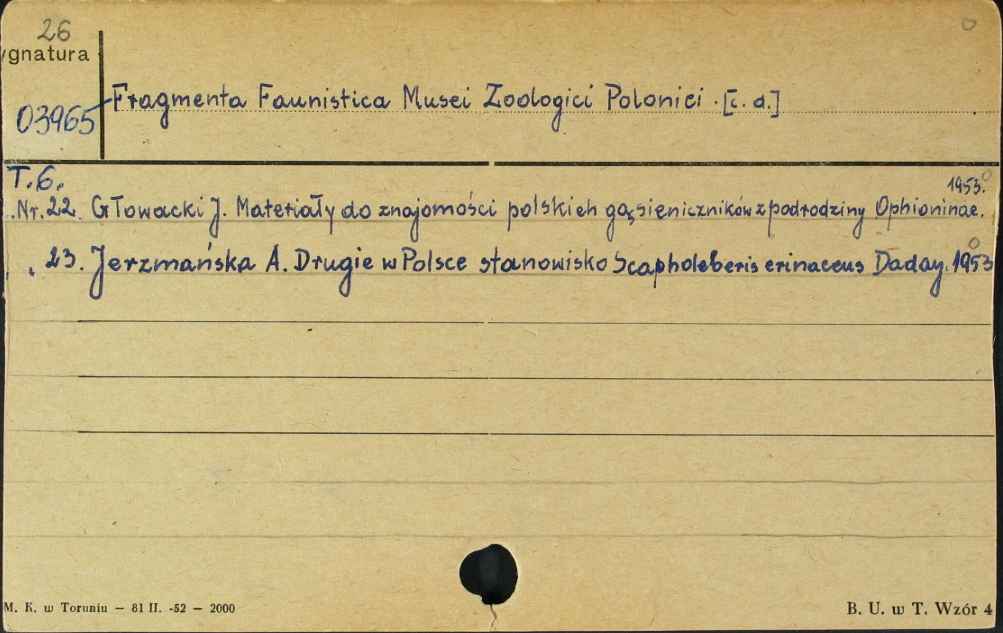 26
ygnatura
03965
Fragmenta Faunistica Musei Zoologici Polonici. [c. d.]
T. 6.
Nr. 22. Głowacki J. Materiały do znajomości polskich gąsieniczników z podrodziny Ophioninae. 1953.
„ 23. Jerzmańska A. Drugie w Polsce stanowisko Scapholeberis erinaceus Daday. 1953
M. K. w Toruniu — 81 II. -52 — 2000
B. U. w T. Wzór 4